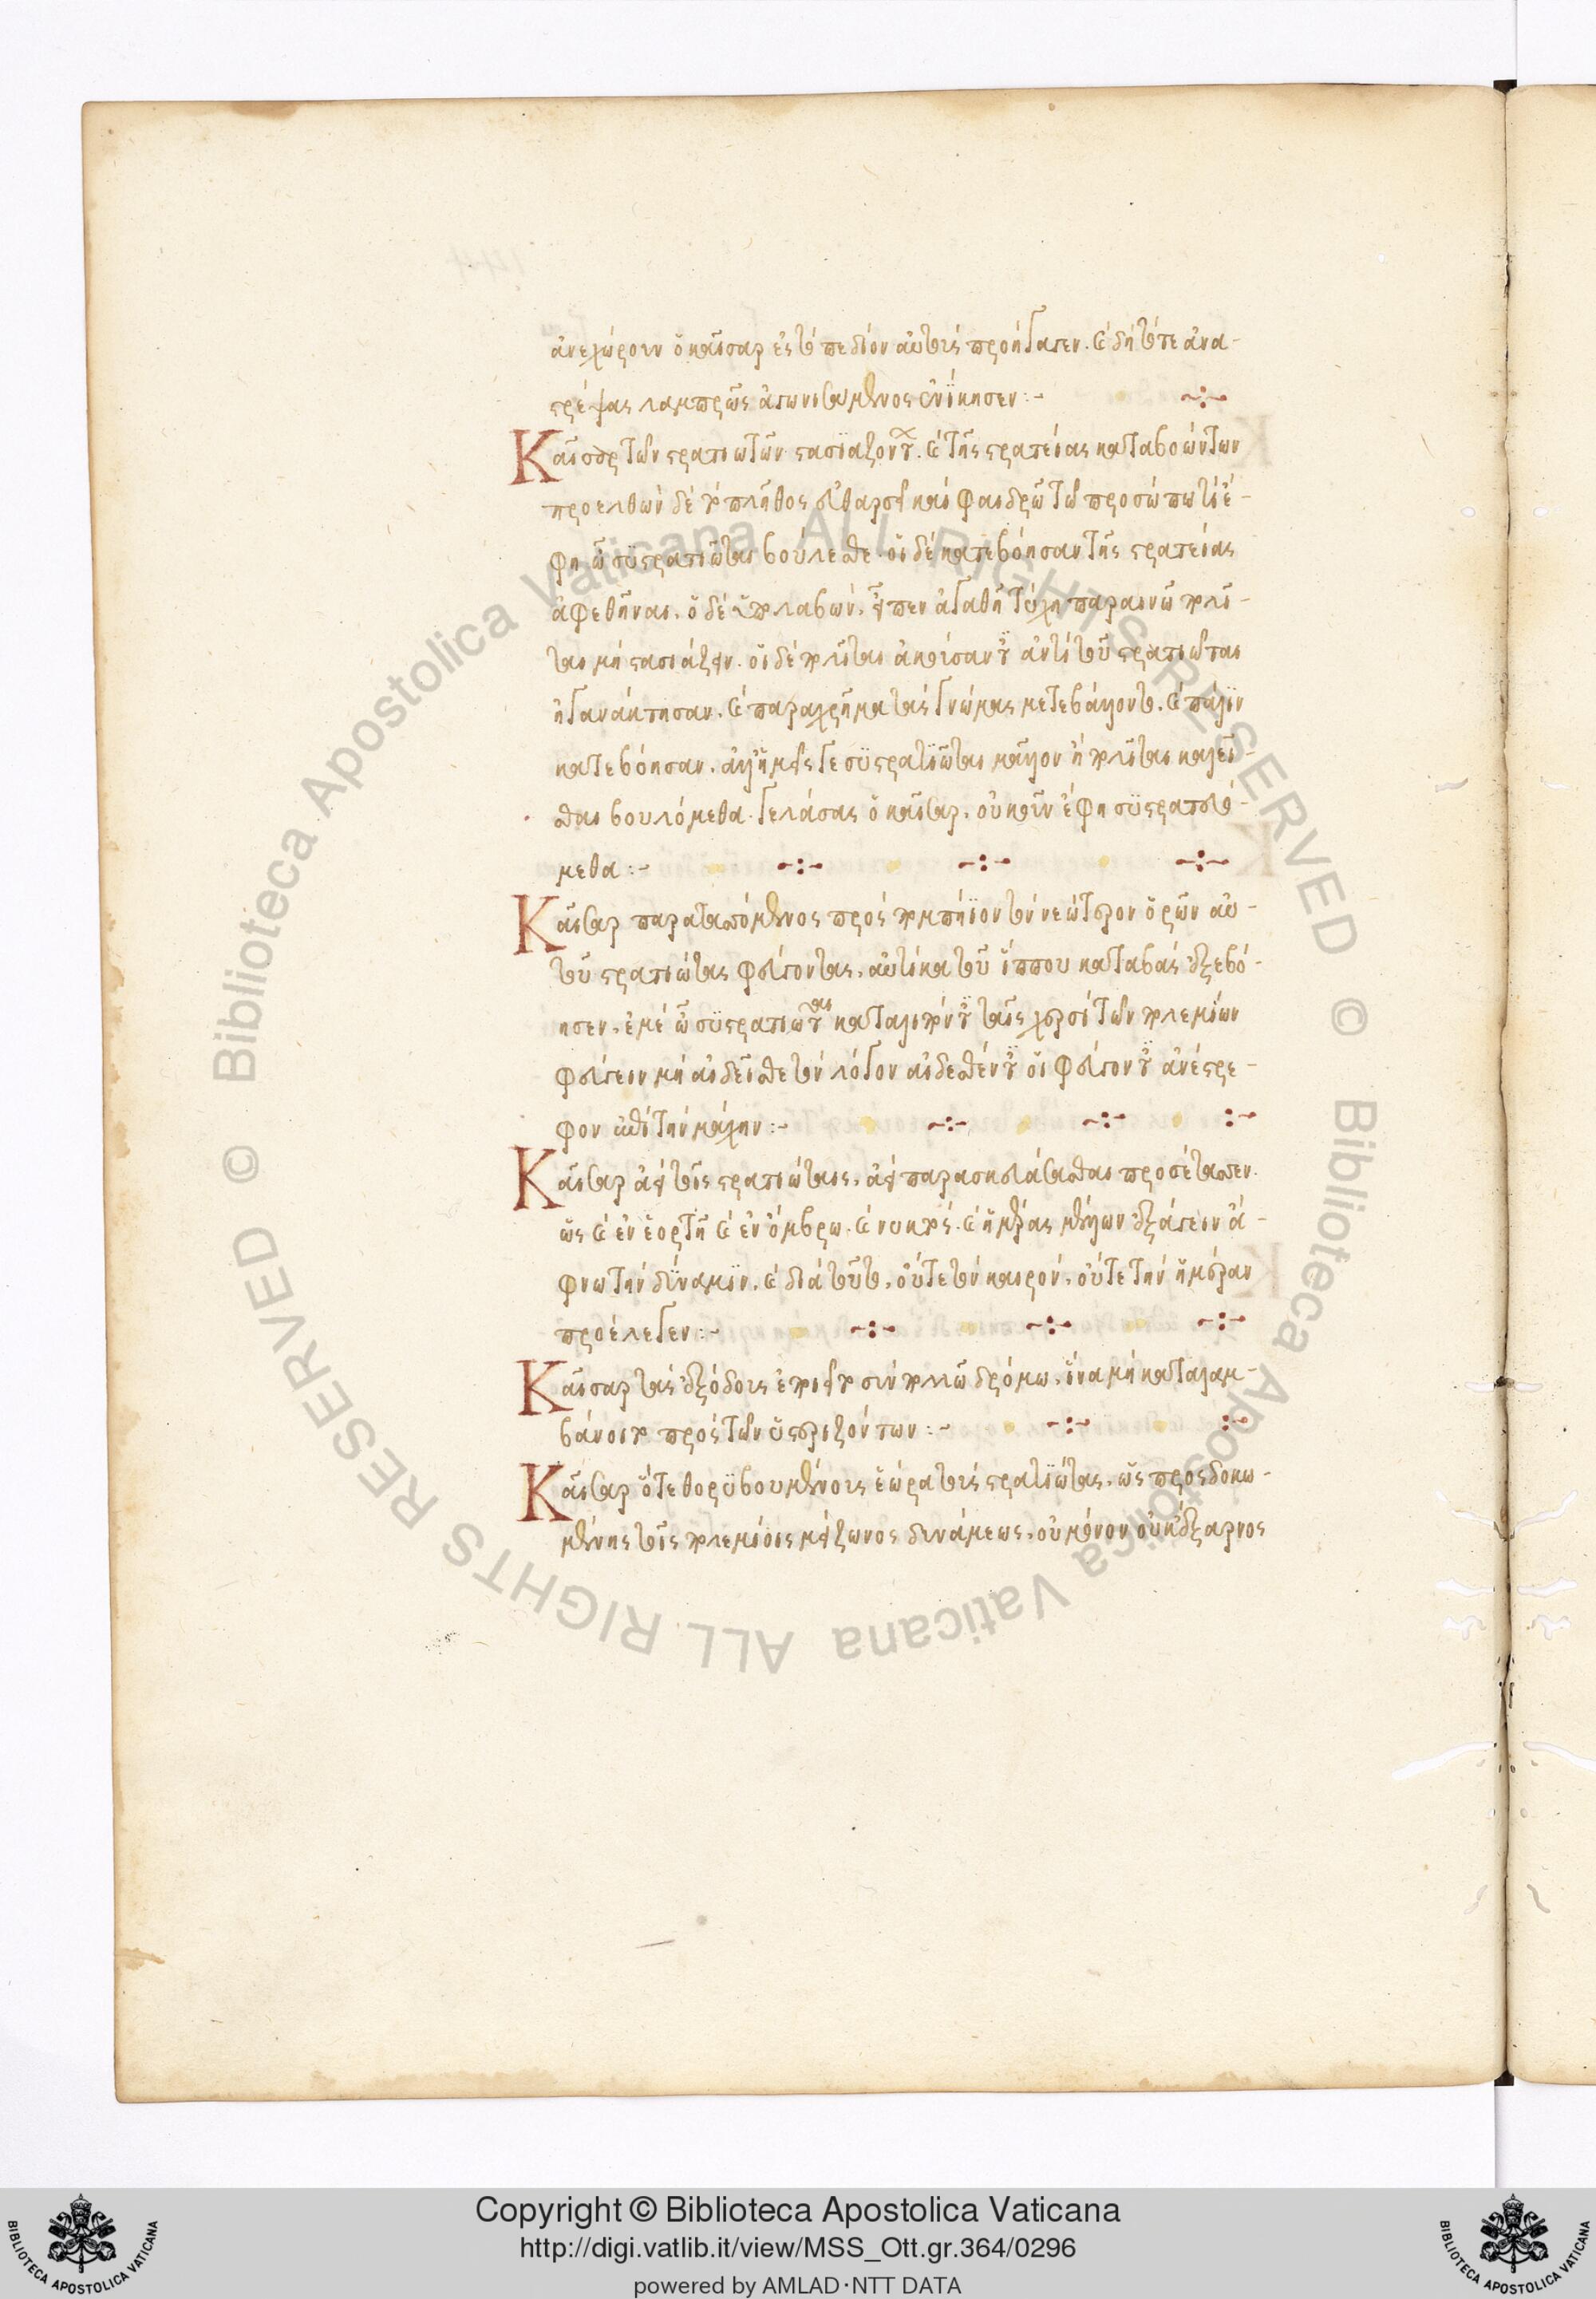 ἀνεχώρουν ὁ καῖσαρ ἐς τὸ πεδίον αὐτοὺς προήγαγεν. καὶ δὴ τότε ἀνα-
στρέψας λαμπρῶς ἀγωνισάμενος ἐνίκησεν:-
Καῖσαρ τῶν στρατιωτῶν στασιαζόντων. καὶ τῆς στρατείας καταβοώντων
προελθὼν δὲ ἐς πλῆθος εὐθαρσεῖ καὶ φαιδρῶ τῶ προσώπω τί ἔ-
φη ὦ συστρατιῶται βούλεσθε. οἱ δὲ κατεβόησαν τῆς στρατείας
ἀφεθῆναι. ὁ δὲ ὑπολαβὼν, εἶπεν ἀγαθῆ τύχη παραινῶ πολῖ-
ται μὴ στασιάζειν. οἱ δὲ πολῖται ἀκούσαντες ἀντὶ τοῦ στρατιῶται
ἠγανάκτησαν. καὶ παραχρῆμα τὰς γνώμας μετεβάλλοντο. καὶ πάλιν
κατεβόησαν. ἀλλ' ἡμεῖς γε συστρατιῶται μᾶλλον ἢ πολῖται καλεῖ-
σθαι βουλόμεθα. γελάσας ὁ καῖσαρ, οὐκοῦν ἔφη συστρατευό-
μεθα:-
Καῖσαρ παραταττόμενος πρὸς πομπήϊον τὸν νεώτερον ὁρῶν αὐ-
τοῦ στρατιώτας φεύγοντας, αὐτίκα τοῦ ἵππου καταβὰς ἐξεβό-
ησεν, ἐμὲ ὦ συστρατιῶται καταλιπόντες ταῖς χερσὶ τῶν πολεμίων
φεύγειν μὴ αἰδεῖσθε τὸν λόγον αἰδεσθέντες οἱ φεύγοντες ἀνέστρε-
φον ἐπὶ τὴν μάχην:-
Καῖσαρ ἀεὶ τοῖς στρατιώταις, ἀεὶ παρασκευάσασθαι προσέταττεν.
ὡς καὶ ἐν ἑορτῆ καὶ ἐν ὄμβρω. καὶ νυκτὸς. καὶ ἡμέρας μέλλων ἐξάγειν ἄ-
φνω τὴν δύναμιν. καὶ διὰ τοῦτο, οὔτε τὸν καιρὸν, οὔτε τὴν ἡμέραν
προέλεγεν:-
Καῖσαρ τὰς ἐξόδους ἐποιεῖτο σὺν πολλῶ δρόμω, ἵνα μὴ καταλαμ-
βάνοιτο πρὸς τῶν ὑστεριζόντων:-
Καῖσαρ ὅτε θορυβουμένους ἑώρα τοὺς στρατιώτας, ὡς προσδοκω-
μένης τοῖς πολεμίοις μείζονος δυνάμεως, οὐ μόνον οὐκ ἔξαρνος
Copyright © Biblioteca Apostolica Vaticana
http://digi.vatlib.it/view/MSS_Ott.gr.364/0296
powered by AMLAD·NTT DATA